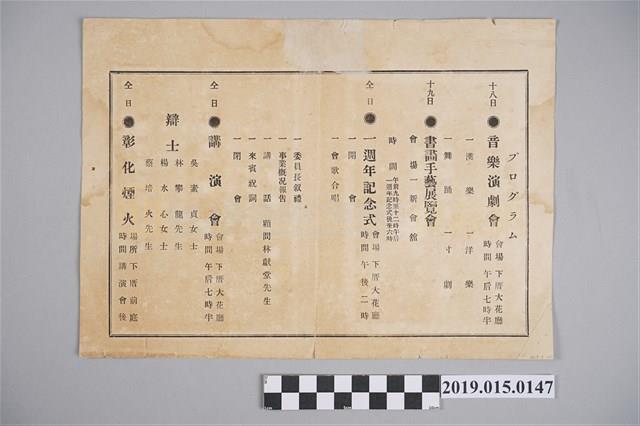 プログラム
十八日 ● 音樂演劇會 會場 下厝大花廳 時間 午后七時半
一漢樂 一洋樂
一舞踊 一寸劇
十九日 ● 書畵手藝展覽會
會場 一新會舘
時間 午前九時至十二時午后一週年記念式後至六時
仝日 ● 一週年記念式 會場 下厝大花廳 時間 午後二時
一開會
一會歌合唱
一委員長叙禮
一事業概况報告
一講話 顧問林獻堂先生
一來賓祝詞
一閉會
仝日 ● 講演會 會場 下厝大花廳 時間 午后七時半
辯士
吳素貞女士
林攀龍先生
楊水心女士
蔡培火先生
仝日 ● 彰化煙火 場所 下厝前庭 時間 講演會後
2019.015.0147